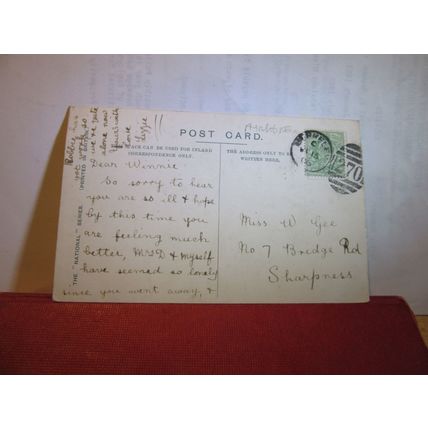 POST CARD.
THIS SPACE CAN BE USED FOR INLAND
CORRESPONDENCE ONLY.
THE ADDRESS ONLY TO BE
WRITTEN HERE.
THE "NATIONAL" SERIES
Dear Winnie
So sorry to hear
you are so ill & hope
by this time you
are feeling much
better, MVD & myself
have seemed so lonely
since you went away, &
Bobbie has
so
we're quite
alone now
love
Lizzie
Miss W Gee
No 7 Bridge Rd
Sharpness
70